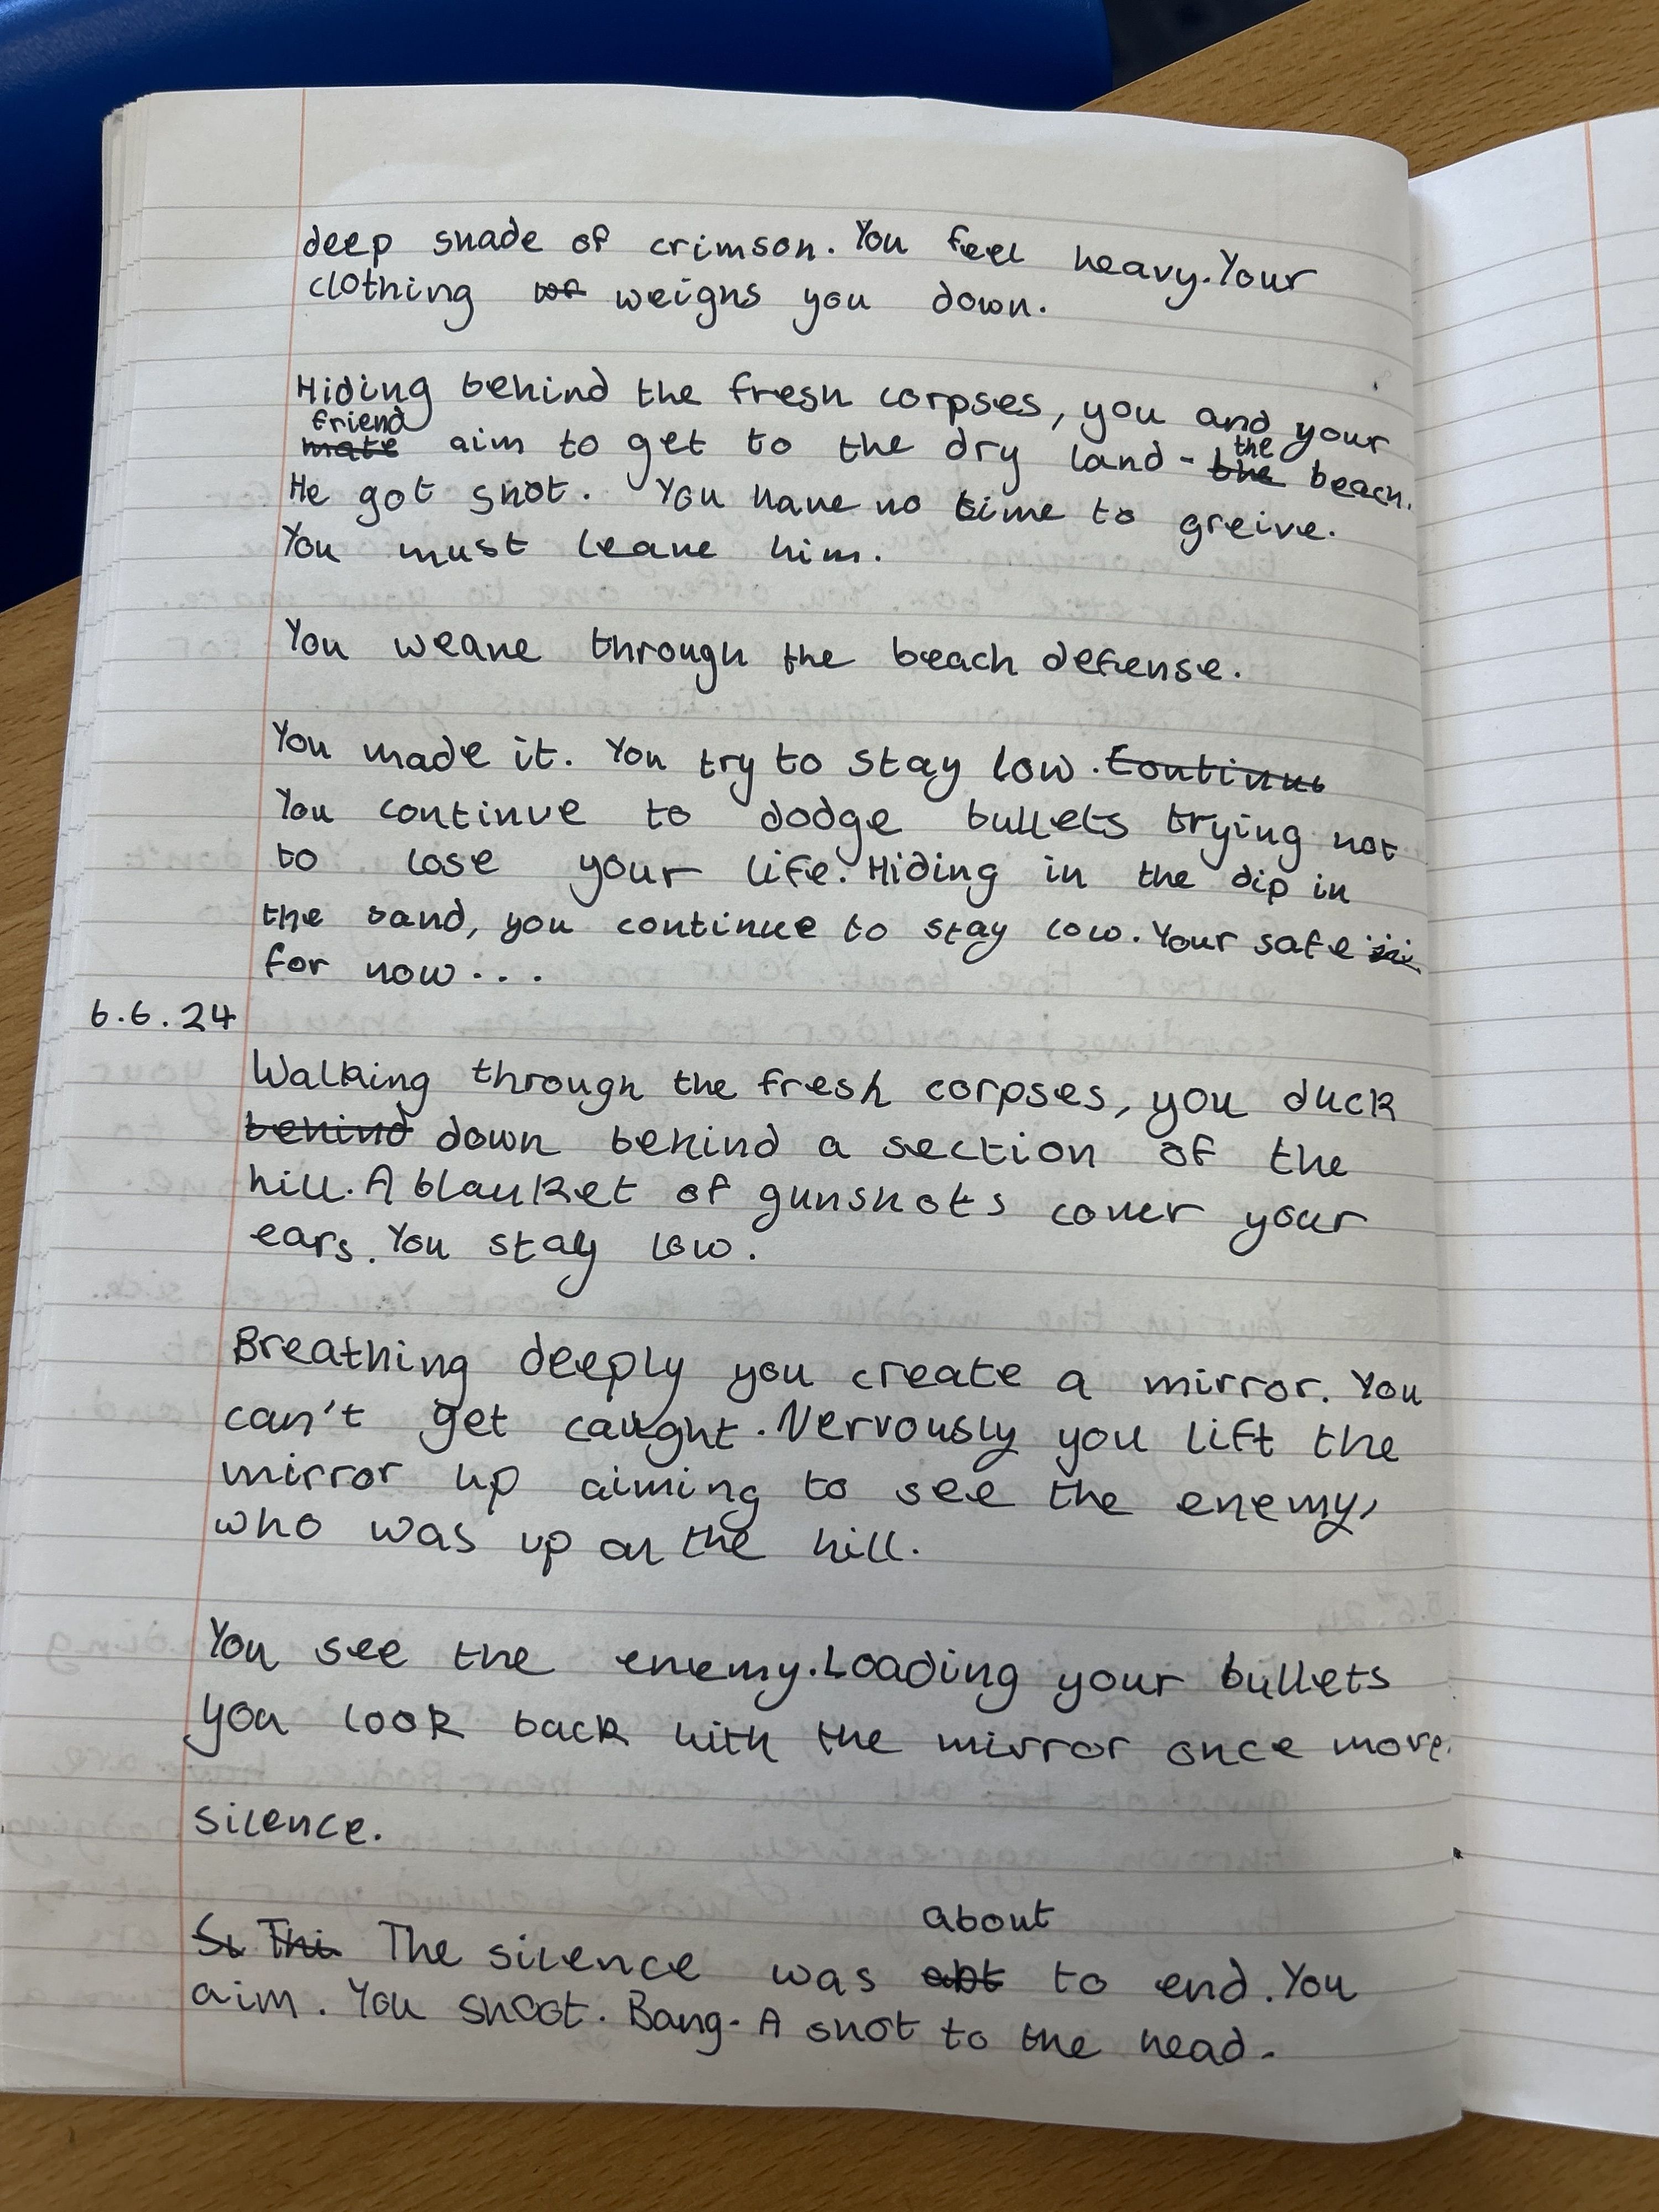 deep shade of crimson. You feel heavy. Your
clothing we weighs you down.
Hiding behind the fresh corpses, you and your
friend
mate aim to get to the dry land - the the beach.
He got shot. You have no time to greive.
You must leave him.
You weave through the beach defense.
You made it. You try to stay low. Continue
You continue to dodge bullets trying not
to lose your life. Hiding in the dip in
the sand, you continue to stay low. Your safe
for now...
6.6.24
Walking through the fresh corpses, you duck
behind down behind a section of the
hill. A blanket of gunshots cover your
ears. You stay low.
Breathing deeply you create a mirror. You
can't get caught. Nervously you lift the
mirror up aiming to see the enemy,
who was up on the hill.
You see the enemy. Loading your bullets
you look back with the mirror once more.
silence.
about
Si Thi The silence was abt to end. You
aim. You shoot. Bang. A shot to the head.